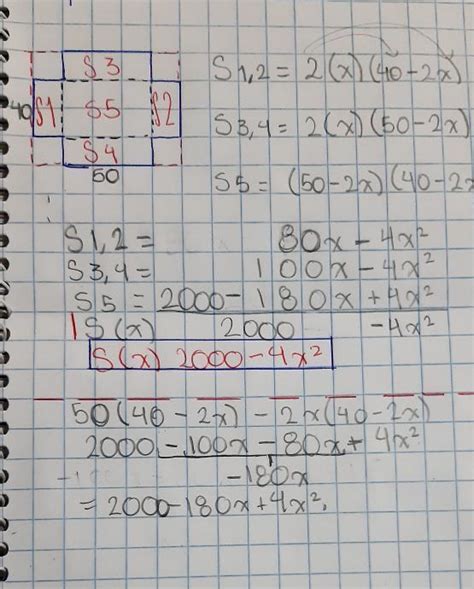 S3
S1,2 = 2(x)(40-2x)
40 S1 S5 S2
S3,4 = 2(x)(50-2x)
S4
50
S5 = (50-2x)(40-2x
S1,2 = 80x - 4x²
S3,4 = 100x - 4x²
S5 = 2000 - 180x + 4x²
S(x) 2000 -4x²
S(x) 2000 - 4x²
50(40 - 2x) - 2x(40 - 2x)
2000 - 100x - 80x + 4x²
-180x
= 2000 - 180x + 4x²,